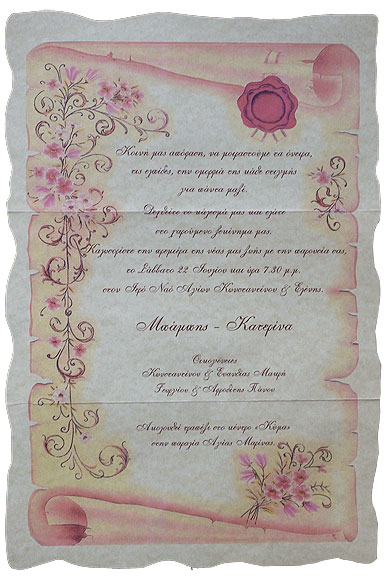 Κοινή μας απόφαση, να μοιραστούμε τα όνειρα,
τις ελπίδες, την ομορφιά της κάθε στιγμής
για πάντα μαζί.
Δεχθείτε το κάλεσμά μας και ελάτε
στο χαρούμενο ξεκίνημα μας.
Χαιρετίστε την πρεμιέρα της νέας μας ζωής με την παρουσία σας,
το Σάββατο 22 Ιουνίου και ώρα 7.30 μ.μ.
στον Ιερό Ναό Αγίων Κωνσταντίνου & Ελένης.
Μπάμπης - Κατερίνα
Οικογένειες
Κωνσταντίνου & Ευανθίας Μαυρή
Γεωργίου & Αφροδίτης Πάνου
Ακολουθεί τραπέζι στο κέντρο «Κύμα»
στην παραλία Αγίας Μαρίνας.